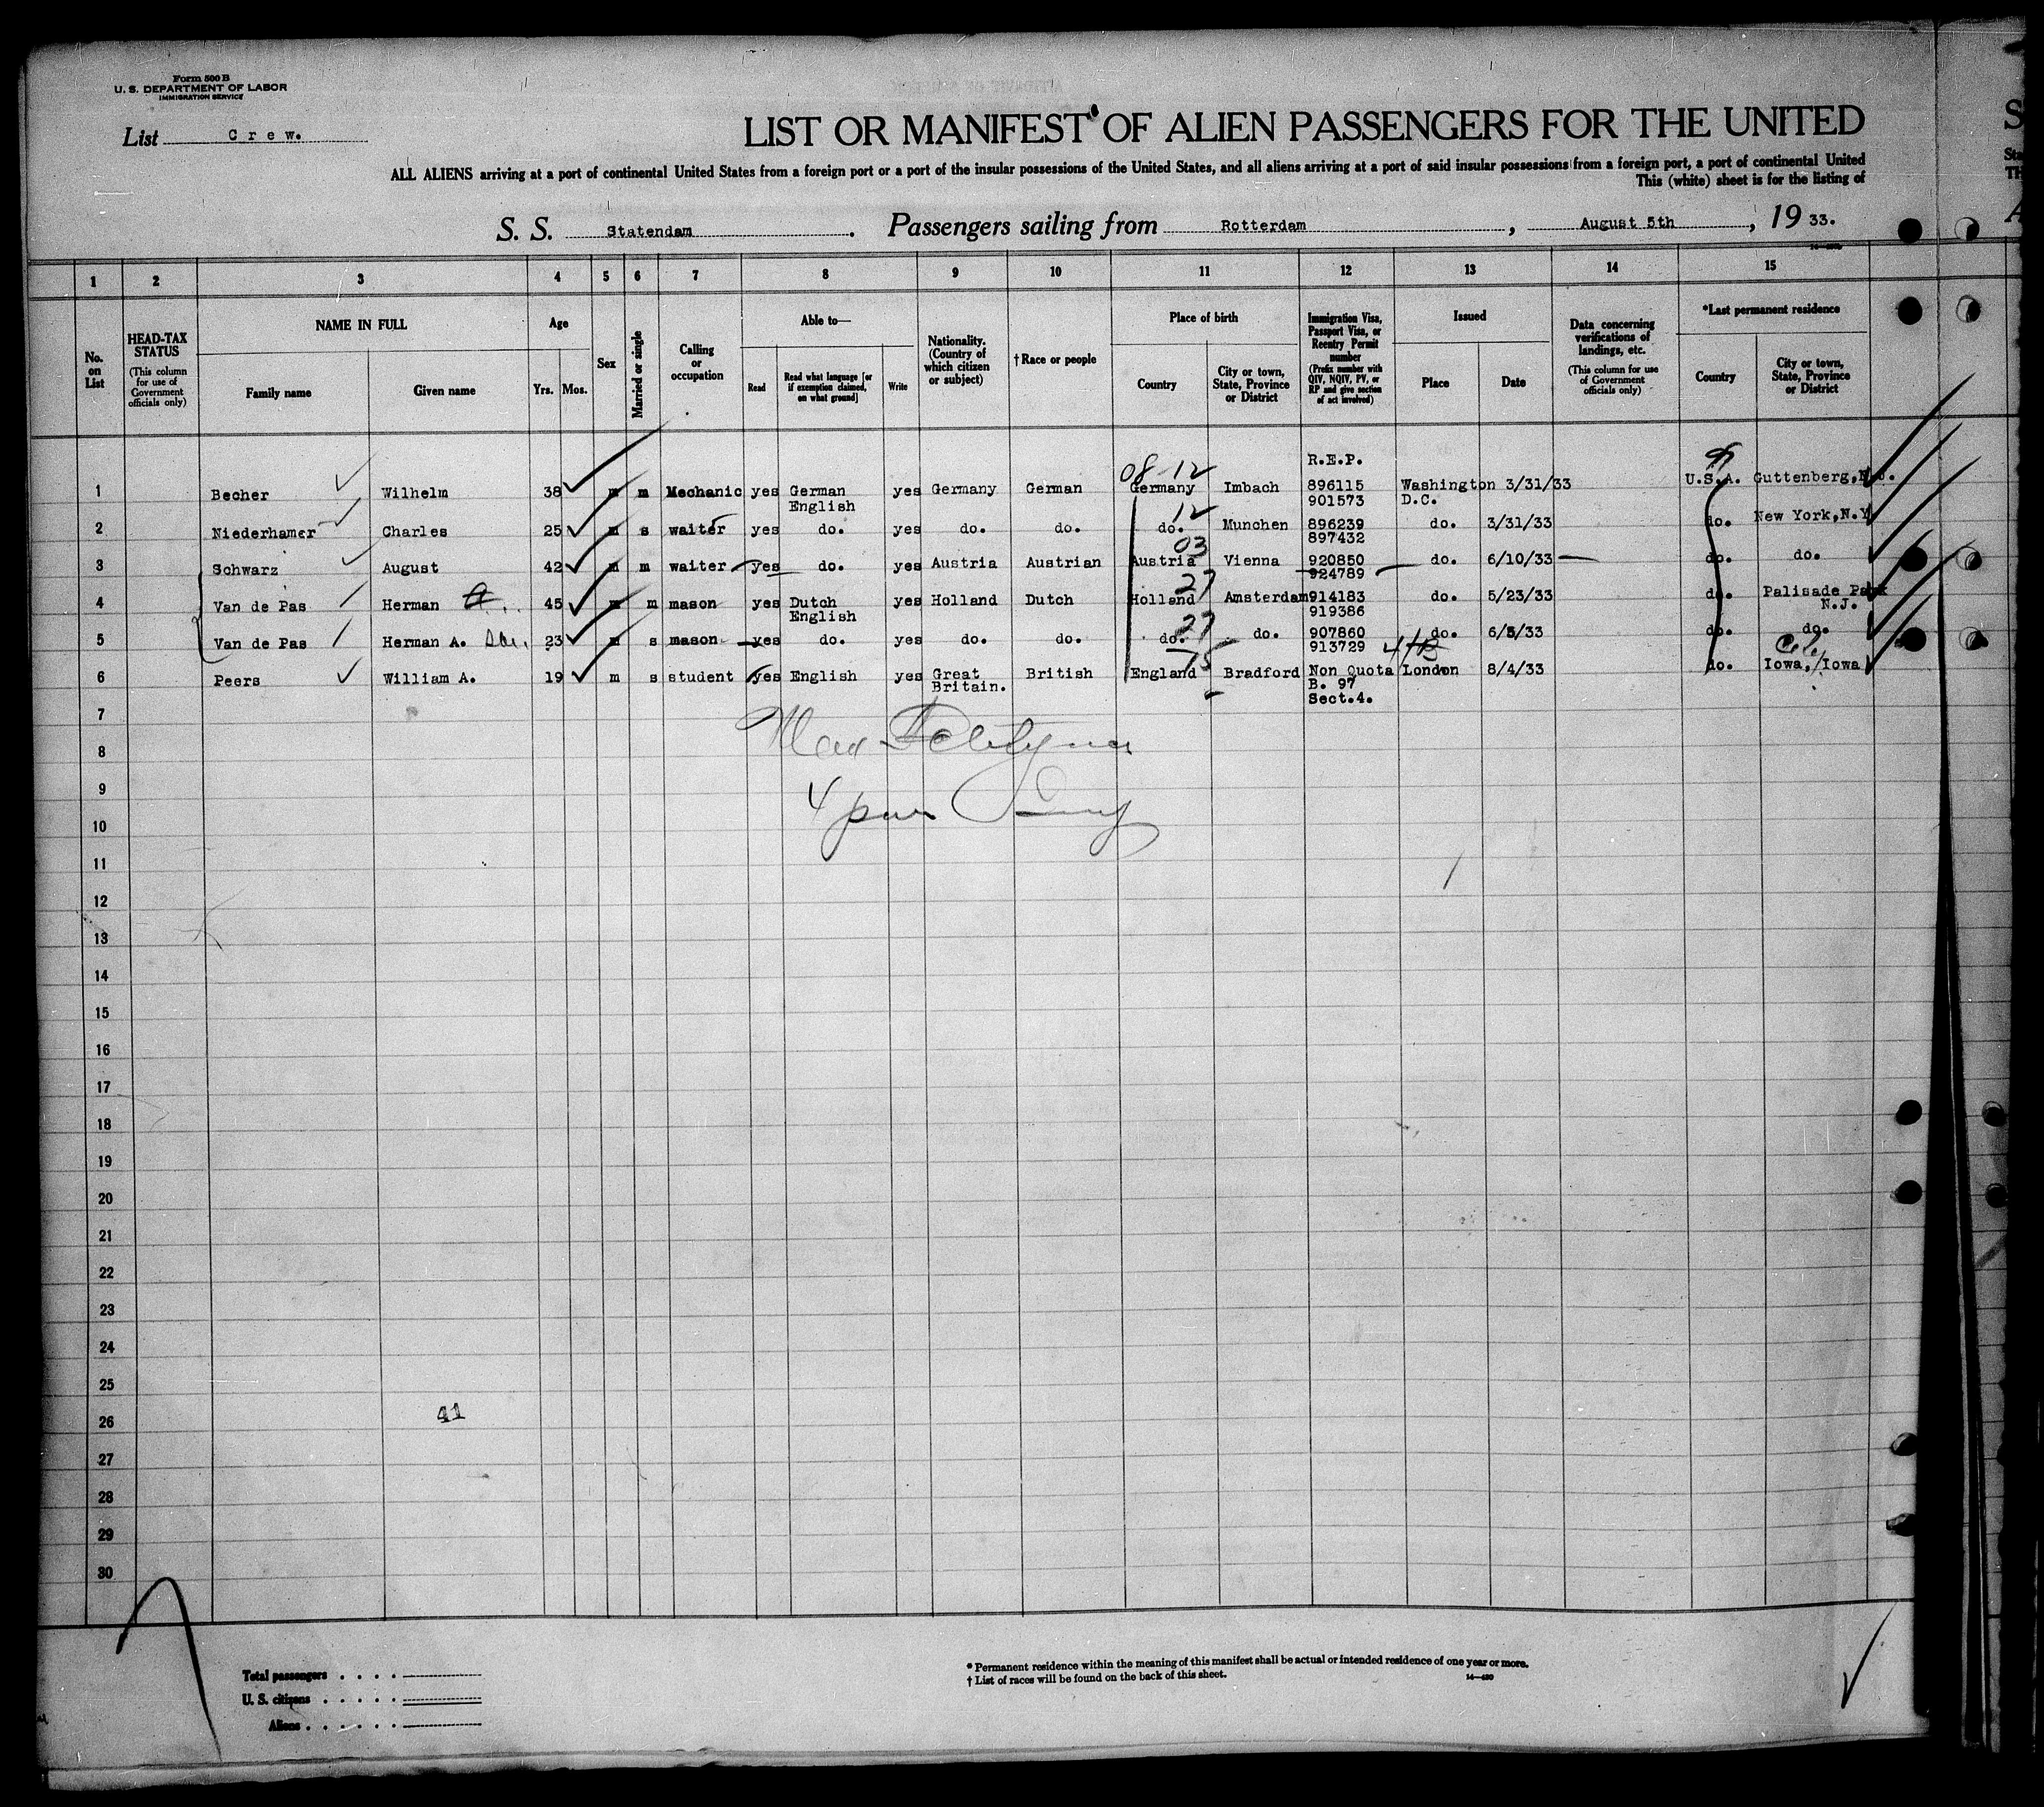 Form 500 B
U. S. DEPARTMENT OF LABOR
IMMIGRATION SERVICE
List Crew.
LIST OR MANIFEST OF ALIEN PASSENGERS FOR THE UNITED
ALL ALIENS arriving at a port of continental United States from a foreign port or a port of the insular possessions of the United States, and all aliens arriving at a port of said insular possessions from a foreign port, a port of continental United
This (white) sheet is for the listing of
S. S. Statendam. Passengers sailing from Rotterdam, August 5th, 1933.
1 2 3 4 5 6 7 8 9 10 11 12 13 14 15
No. on List
HEAD-TAX STATUS
(This column for use of Government officials only)
NAME IN FULL
Family name
Given name
Age
Yrs. Mos.
Sex
Married or single
Calling or occupation
Able to—
Read
Read what language [or if exemption claimed, on what ground]
Write
Nationality. (Country of which citizen or subject)
† Race or people
Place of birth
Country
City or town, State, Province or District
Immigration Visa, Passport Visa, or Reentry Permit number
(Prefix number with QIV, NQIV, PV, or RP and give section of act involved)
Issued
Place
Date
Data concerning verifications of landings, etc.
(This column for use of Government officials only)
*Last permanent residence
Country
City or town, State, Province or District
R.E.P.
08 12
1 Becher Wilhelm 38 m m Mechanic yes German yes Germany German Germany Imbach 896115 Washington 3/31/33 U.S.A. Guttenberg, N.J.
English 901573 D.C.
12
2 Niederhamer Charles 25 m s waiter yes do. yes do. do. do. Munchen 896239 do. 3/31/33 do. New York, N.Y
897432
03
3 Schwarz August 42 m m waiter yes do. yes Austria Austrian Austria Vienna 920850 do. 6/10/33 do. do.
924789
27
4 Van de Pas Herman 45 m m mason yes Dutch yes Holland Dutch Holland Amsterdam 914183 do. 5/23/33 do. Palisade Park
English 919386 N.J.
27
5 Van de Pas Herman A. 23 m s mason yes do. yes do. do. do. do. 907860 do. 6/5/33 do. do.
913729
15
6 Peers William A. 19 m s student yes English yes Great Britain. British England Bradford Non Quota London 8/4/33 do. Iowa, Iowa
B. 97
Sect.4.
7
8
9
10
11
12
13
14
15
16
17
18
19
20
21
22
23
24
25
26 41
27
28
29
30
Total passengers
U. S. citizens
Aliens
* Permanent residence within the meaning of this manifest shall be actual or intended residence of one year or more.
† List of races will be found on the back of this sheet.
14—430